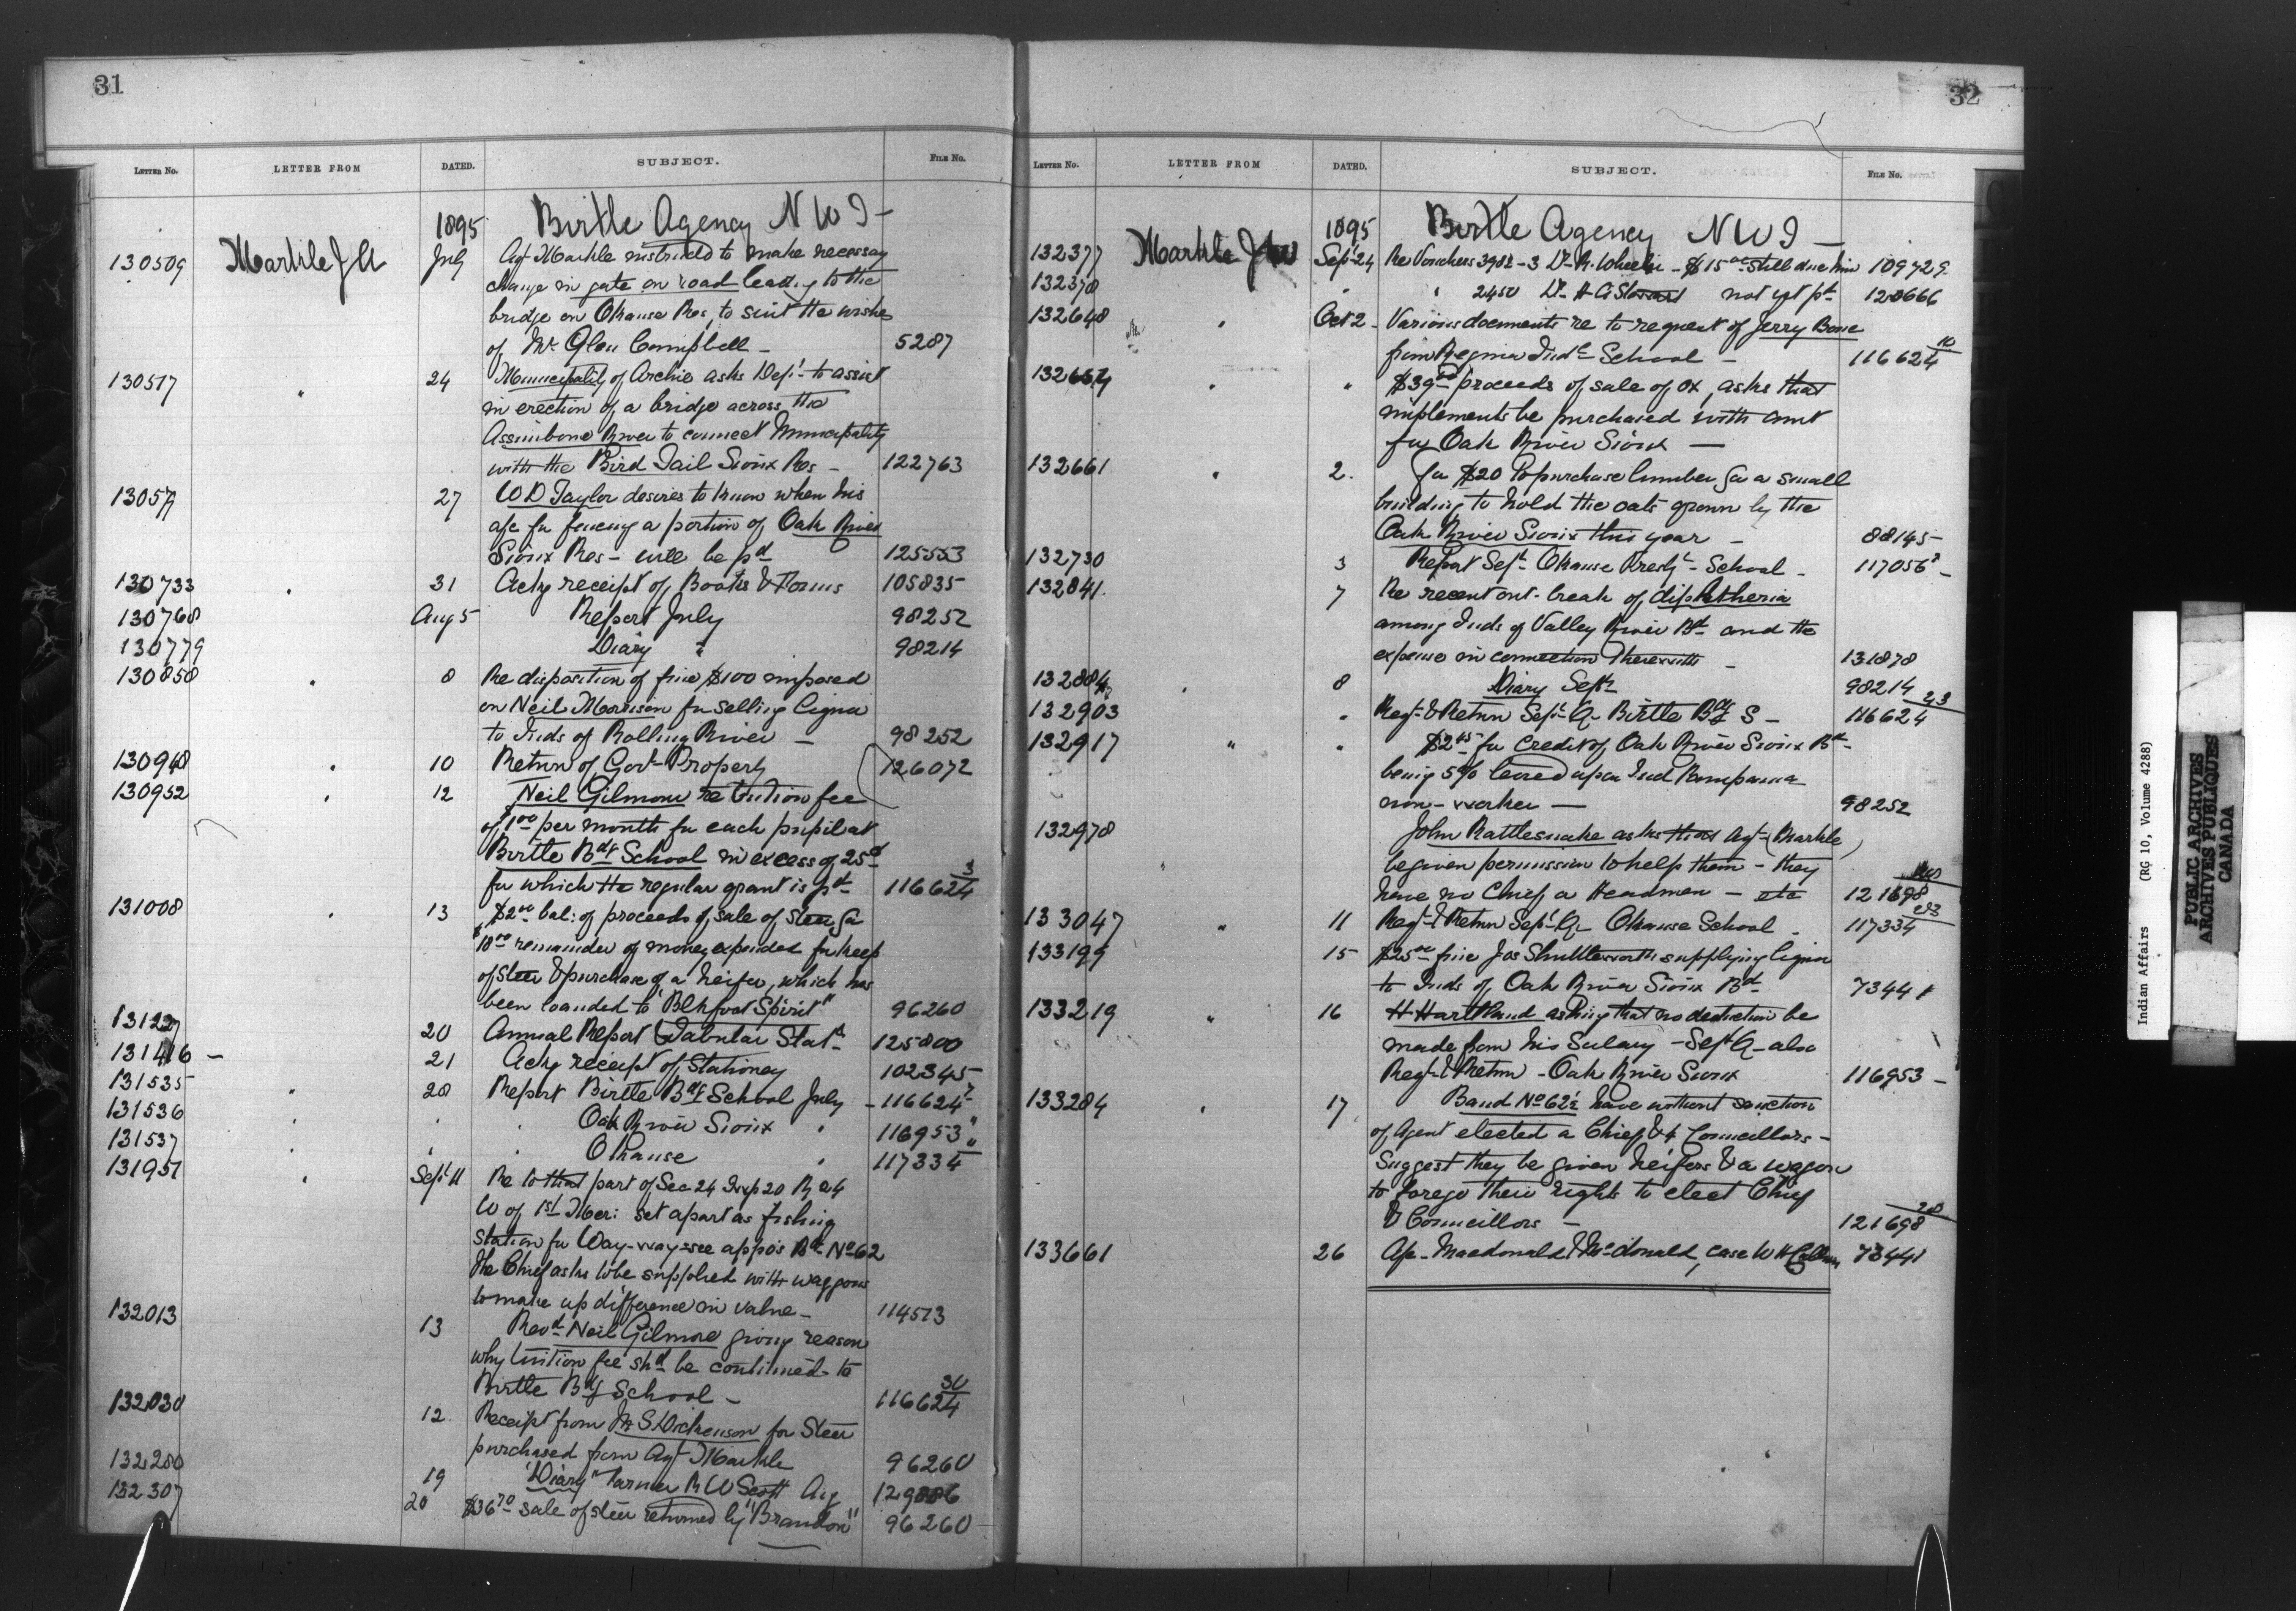 31
LETTER NO. LETTER FROM DATED. SUBJECT. FILE NO.
1895 Birtle Agency N W T -
130509 Markle J A July Agt Markle instructed to make necessary
change in gate on road leading to the
bridge on Okanse Res, to suit the wishes
of Mr Glen Campbell - 5287
130517 " 24 Municipality of Archie asks Dept to assist
in erection of a bridge across the
Assiniboine River to connect Municipality
with the Bird Tail Sioux Res - 122763
13057 27 W D Taylor desires to know when his
a/c for fencing a portion of Oak River
Sioux Res - will be pd 125553
130733 " 31 Ackg receipt of Books & Forms 105835
130768 Aug 5 Report July 98252
130779 Diary " 98214
130858 " 8 Re disposition of fine $100 imposed
on Neil Morrison for selling Liquor
to Inds of Rolling River - 98252
130948 " 10 Return of Govt Property 126072
130952 " 12 Neil Gilmour re tuition fee
of 1.00 per month for each pupil at
Birtle Bdg School in excess of 25
for which the regular grant is pd 116624 3
131008 " 13 $2.00 bal: of proceeds of sale of steer, for
$10.00 remainder of money expended for keep
of steer & purchase of a heifer, which has
been loaned to "Blkfoot Spirit" 96260
13122 20 Annual Report & Tabular Stat 125800
131416 - 21 Ackg receipt of Stationery 102345
131535 " 28 Report Birtle Bdg School July - 116624
131536 " " " Oak River Sioux " 116953 "
131537 " " " Okanse " 117334 "
131951 " Sept 11 Re to that part of Sec 24 Twp 20 R 24
W of 1st Mer: set apart as fishing
station for Way-way-see-appo's Bd No 62
The Chief asks to be supplied with waggons
to make up difference in value - 114513
132013 13 Revd Neil Gilmore giving reason
why tuition fee shd be continued to
Birtle Bdg School - 116624 30
132030 12 Receipt from Dickenson for Steer
purchased from Agt Markle 96260
132280 19 "Diary" Farmer R W Scott Aug 129886
132307 20 $36.70 sale of steer returned by "Brandon" 96260
32
LETTER NO. LETTER FROM DATED. SUBJECT. FILE NO.
1895 Birtle Agency N W T -
132377 Markle J Sept 24 Re Vouchers 3982 - 3 Dr R. Wheeler - $15.00 still due him 109729
132378 " " 2450 Dr H G Stewart not yet pd 128666
132648 " Oct 2 - Various documents re to request of Jerry Bone
from Regina Indl School - 116624 10
132657 " " $39.00 proceeds of sale of ox, asks that
implements be purchased with amt
for Oak River Sioux -
132661 " 2. for $20 to purchase lumber for a small
building to hold the oats grown by the
Oak River Sioux this year - 88145 -
132730 3 Report Sept Okanse Presbt School - 117056 -
132841 7 Re recent out-break of diphtheria
among Inds of Valley River Bd and the
expense in connection therewith - 131878
132884 " 8 Diary Sept 98214
132903 " Regt & Return Sept Qr Birtle Bdg S - 116624 23
132917 " " $2.45 for credit of Oak River Sioux Bd
being 5% levied upon Ind Pampanna
non-worker - 98252
132978 John Rattlesnake asks that Agt (Markle)
" be given permission to help them - they
have no Chief or Headmen - etc 121698
133047 " 11 Regt & Return Sept Qr Okanse School - 117334
133199 15 $25.00 fine Jas Shuttleworth supplying liquor
to Inds of Oak River Sioux Bd 73441
133219 " 16 H Hartland asking that no deduction be
made from his Salary - Sept Q - also
Regt & Return - Oak River Sioux 116953 -
133284 " 17 Band No 62½ have without sanction
of Agent elected a Chief & 4 Councillors -
Suggest they be given heifers & a wagon
to forego their rights to elect Chief
& Councillors - 121698 28
133661 26 A/c - Macdonald & McDonald, case W H 73441
Indian Affairs (RG 10, Volume 4288)
PUBLIC ARCHIVES
ARCHIVES PUBLIQUES
CANADA